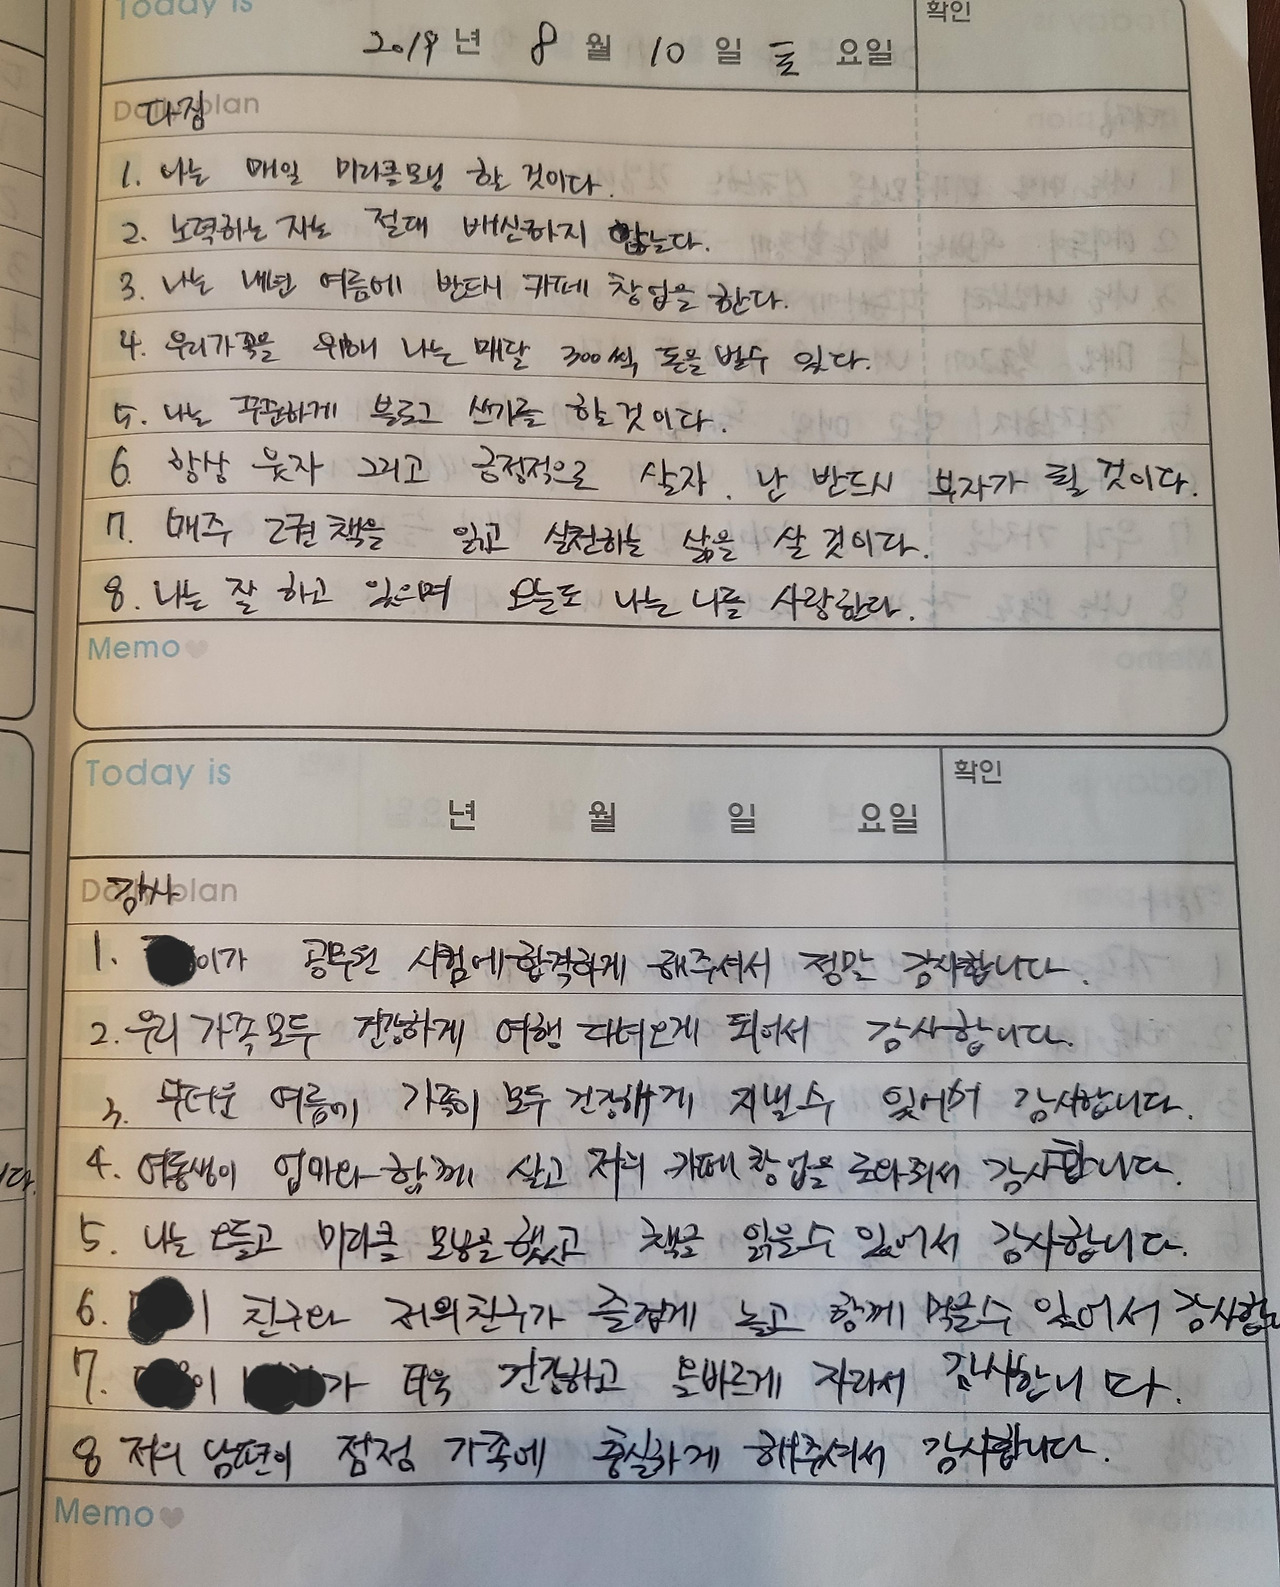 Today is
확인
2019 년 8 월 10 일 토 요일
Daily plan
다짐
1. 나는 매일 미라클모닝 할 것이다.
2. 노력하는 자는 절대 배신하지 않는다.
3. 나는 내년 여름에 반드시 카페 창업을 한다.
4. 우리가족을 위해 나는 매달 300씩 돈을 벌수 있다.
5. 나는 꾸준하게 블로그 쓰기를 할 것이다.
6. 항상 웃자 그리고 긍정적으로 살자. 난 반드시 부자가 될 것이다.
7. 매주 2권 책을 읽고 실천하는 삶을 살 것이다.
8. 나는 잘 하고 있으며 오늘도 나는 나를 사랑한다.
Memo
Today is
확인
년 월 일 요일
Daily plan
감사
1. 이가 공무원 시험에 합격하게 해주셔서 정말 감사합니다.
2. 우리 가족 모두 건강하게 여행 다녀오게 되어서 감사합니다.
3. 무더운 여름에 가족이 모두 건강하게 지낼수 있어서 감사합니다.
4. 여동생이 엄마와 함께 살고 저의 카페 창업을 도와줘서 감사합니다.
5. 나는 오늘고 미라클 모닝을 했고 책을 읽을수 있어서 감사합니다.
6. 이 친구와 저의친구가 즐겁게 놀고 함께 먹을수 있어서 감사합니
7. 이 가 더욱 건강하고 올바르게 자라서 감사합니다.
8 저의 남편이 점점 가족에 충실하게 해주셔서 감사합니다.
Memo